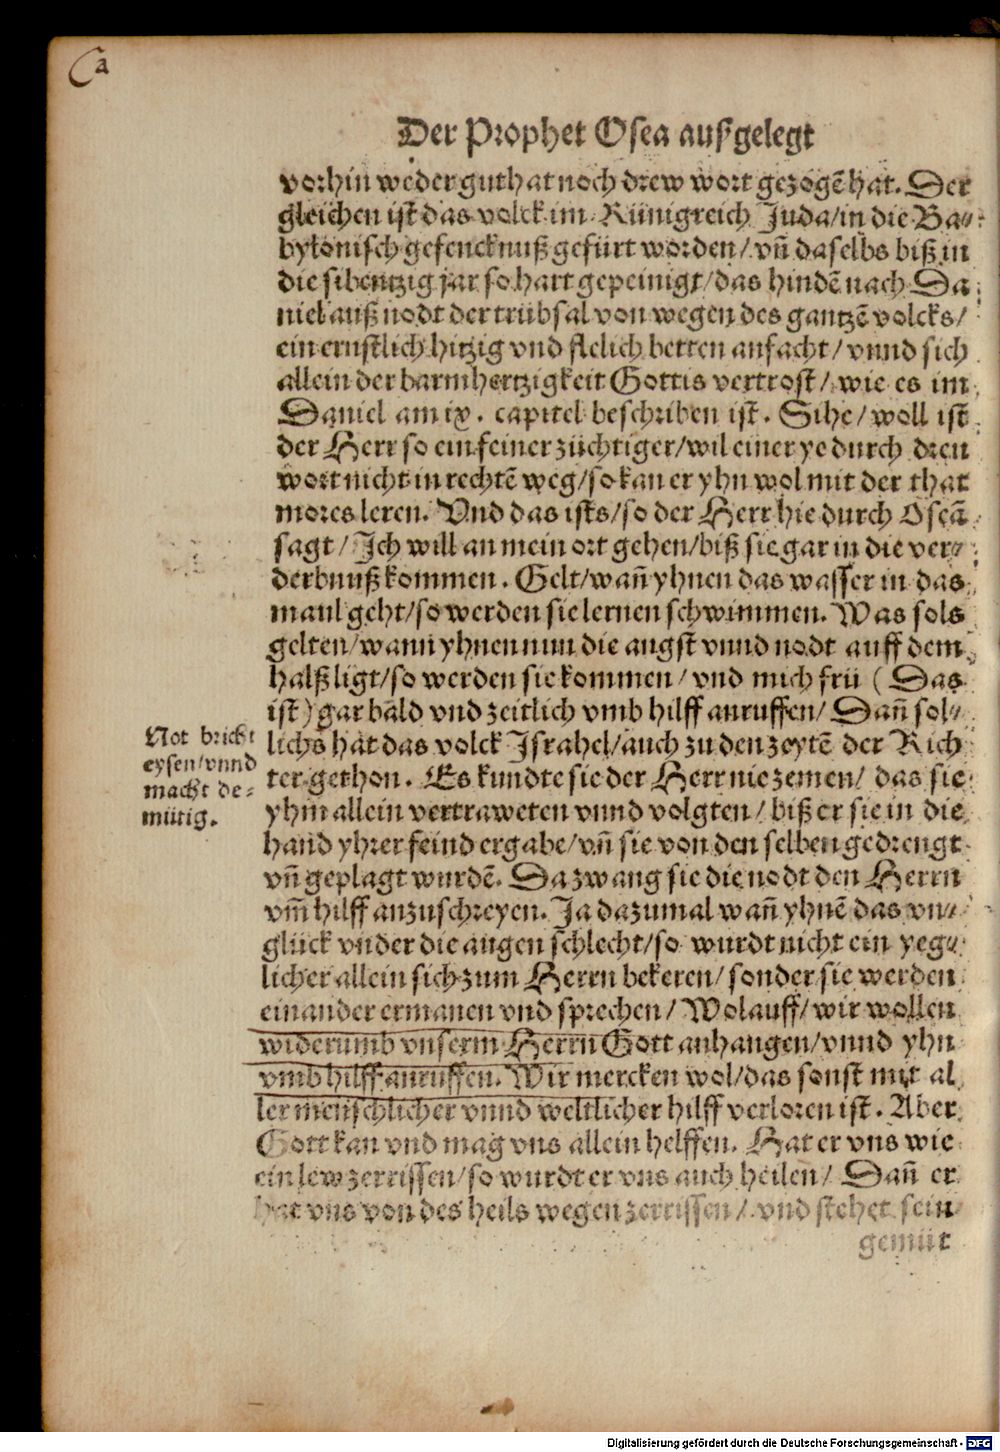 Ca
Der Prophet Osea außgelegt
vorhin weder gut hat noch drew wort gezogē hat. Der
gleichen ist das volck im Künigreich Juda/in die Ba⸗
bylonisch gefencknuß gefürt worden/ vñ daselbs biß in
die sibentzig jar so hart gepeinigt/das hindē nach Da
niel auß nodt der trübsal von wegen des gantzē volcks/
ein ernstlich hitzig vnd flelich betten anfacht/vnnd sich
allein der barmhertzigkeit Gottis vertrost/ wie es im
Daniel am ix. capitel beschriben ist. Sihe/woll ist
der Herr so ein feiner züchtiger/wil einer ye durch dreu
wort nicht in rechtē weg/so kan er yhn wol mit der that
mores leren. Vnd das ists/so der Herr hie durch Oseā
sagt/ Ich will an mein ort gehen/biß sie gar in die ver⸗
derbnuß kommen. Gelt/wañ yhnen das wasser in das
maul geht/so werden sie lernen schwimmen. Was sols
gelten/wann yhnen nun die angst vnnd nodt auff dem
halß ligt/so werden sie kommen/ vnd mich frü (Das
ist) gar bald vnd zeitlich vmb hilff anruffen/ Dañ sol⸗
lichs hat das volck Israhel/auch zu den zeytē der Rich
ter gethon. Es kundte sie der Herr nie zemen/ das sie
yhm allein vertraweten vnnd volgten/ biß er sie in die
hand yhrer feind ergabe/vñ sie von den selben gedrengt
vñ geplagt wurdē. Da zwang sie die nodt den Herrn
vm̃ hilff anzuschreyen. Ja dazumal wañ yhnē das vn⸗
glück vnder die augen schlecht/so wurdt nicht ein yeg⸗
licher allein sich zum Herrn bekeren/ sonder sie werden
einander ermanen vnd sprechen/ Wolauff/wir wollen
widerumb vnserm Herrn Gott anhangen/vnnd yhn
vmb hilff anruffen. Wir mercken wol/das sonst mit al
ler menschlicher vnnd weltlicher hilff verloren ist. Aber
Gott kan vnd mag vns allein helffen. Hat er vns wie
ein lew zerrissen/so wurdt er vns auch heilen/ Dañ er
hat vns von des heils wegen zerrissen/ vnd stehet sein
gemüt
Not bricht
eysen/vnnd
macht de⸗
mütig.
Digitalisierung gefördert durch die Deutsche Forschungsgemeinschaft - DFG